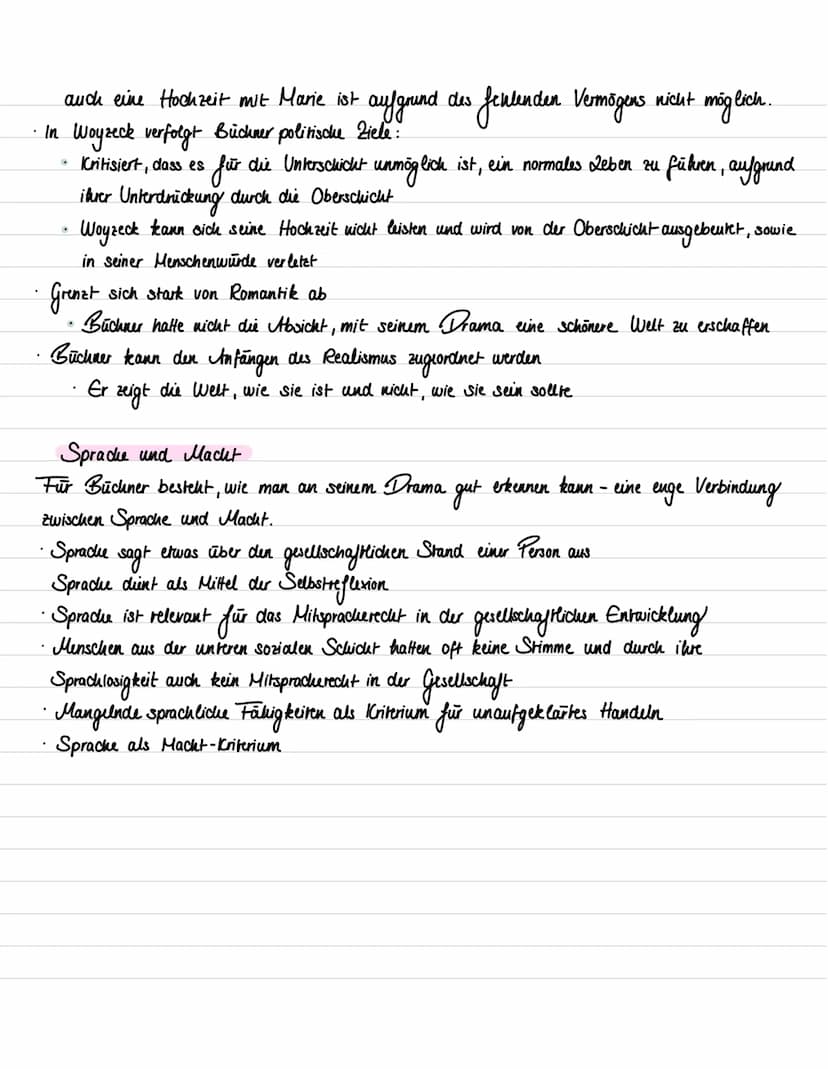 auch eine Hochzeit mit Marie ist aufgrund des fehlenden Vermögens nicht möglich.
· In Woyzeck verfolgt Büchner politische Ziele:
• Kritisiert, dass es für die Unterschicht unmöglich ist, ein normales Leben zu führen, aufgrund
ihrer Unterdrückung durch die Oberschicht
• Woyzeck kann sich seine Hochzeit nicht leisten und wird von der Oberschicht ausgebeutet, sowie
in seiner Menschenwürde verletzt
· Grenzt sich stark von Romantik ab
• Büchner hatte nicht die Absicht, mit seinem Drama eine schönere Welt zu erschaffen
· Büchner kann den Anfängen des Realismus zugeordnet werden
· Er zeigt die Welt, wie sie ist und nicht, wie sie sein sollte
Sprache und Macht
Für Büchner besteht, wie man an seinem Drama gut erkennen kann - eine enge Verbindung
zwischen Sprache und Macht.
· Sprache sagt etwas über den gesellschaftlichen Stand einer Person aus
Sprache dient als Mittel der Selbstreflexion
· Sprache ist relevant für das Mitspracherecht in der gesellschaftlichen Entwicklung
· Menschen aus der unteren sozialen Schicht hatten oft keine Stimme und durch ihre
Sprachlosigkeit auch kein Mitspracherecht in der Gesellschaft
· Mangelnde sprachliche Fähigkeiten als Kriterium für unaufgeklärtes Handeln
· Sprache als Macht-Kriterium